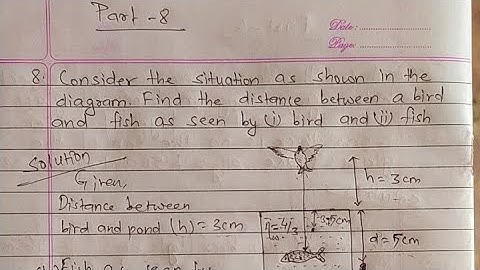 Part - 8
Date:
Page:
8. Consider the situation as shown in the
diagram. Find the distance between a bird
and fish as seen by (i) bird and (ii) fish
Solution
Given,
Distance between
bird and pond (h) = 3cm
h = 3cm
d = 5cm
Fish as seen by